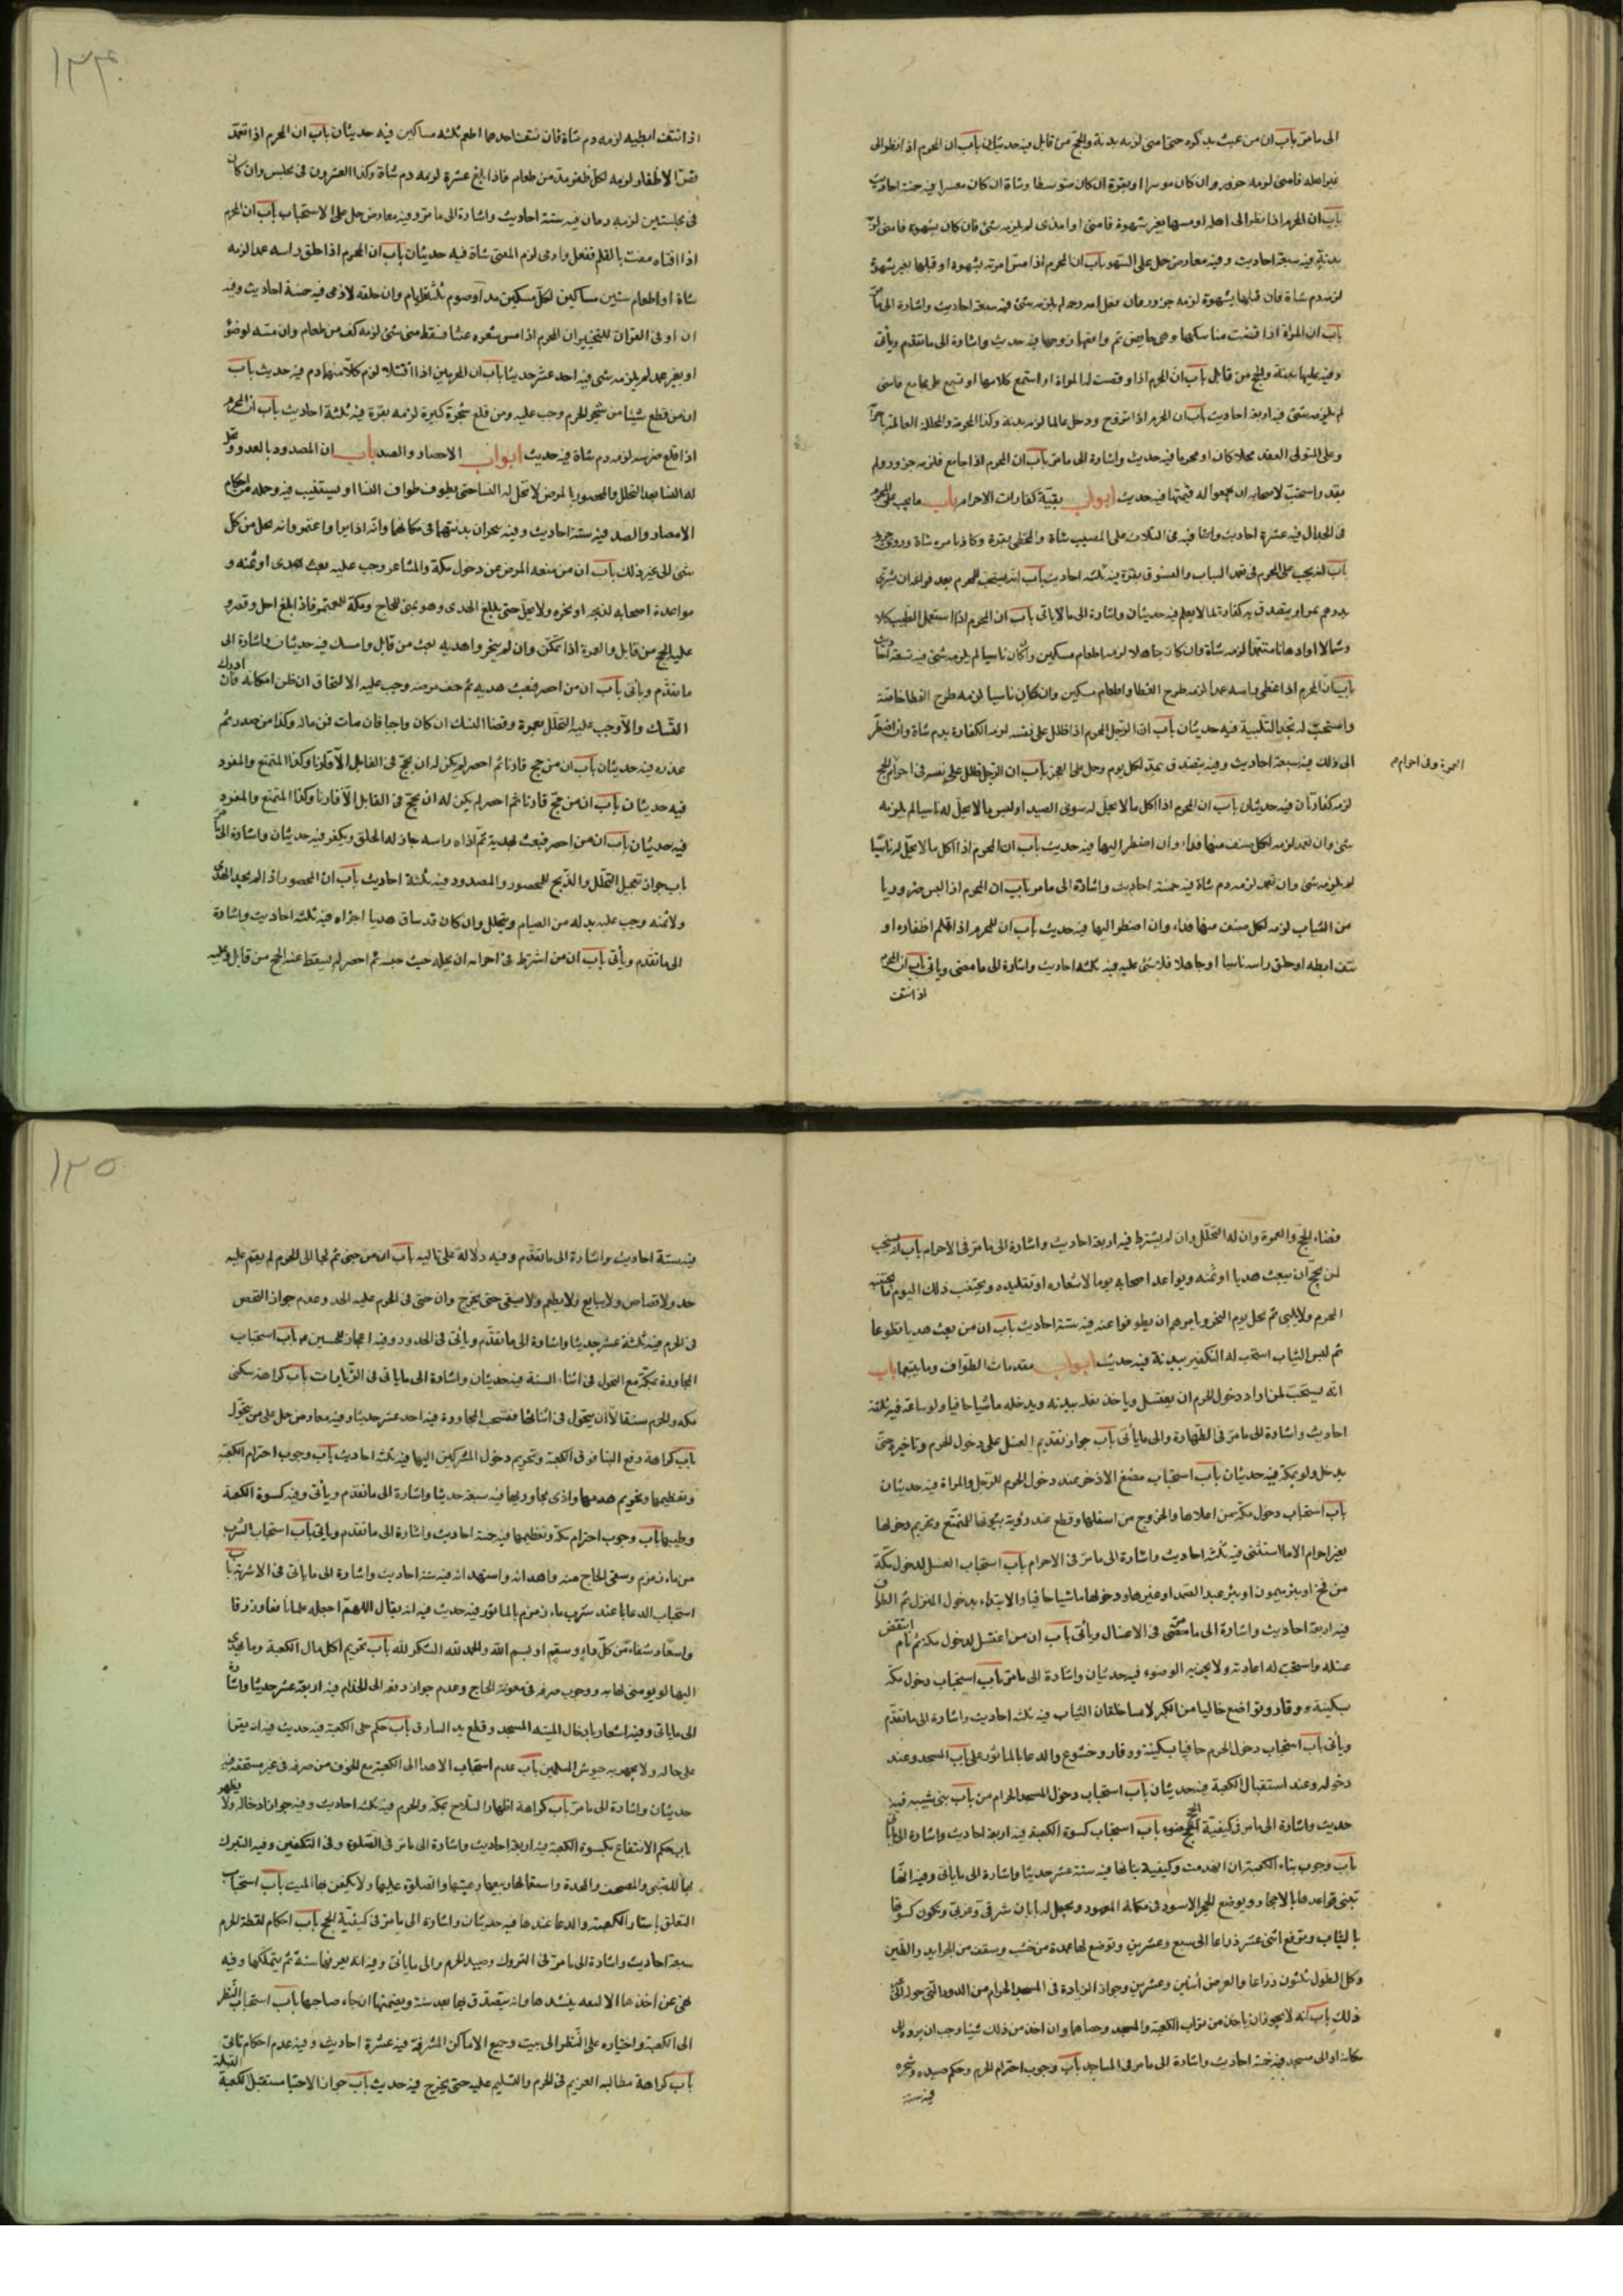 الى ما مرّ باب ان من عبث بذكره حتى امنى لزمه بدنة والحجّ من قابل فيه حديثان باب ان المحرم اذا نظر الى
غير اهله فامنى لزمه جزور ان كان موسرا او بقرة ان كان متوسطا وشاة ان كان معسرا فيه خمسة احاديث
باب ان المحرم اذا نظر الى اهله او مسها بغير شهوة فامنى او امذى لم يلزمه شئ فان كان بشهوة فامنى لزمه
بدنة فيه سبعة احاديث وفيه معارض حمل على السهو باب ان المحرم اذا مسّ امرته بشهوة او قبلها بغير شهوة
لزمه دم شاة فان قبلها بشهوة لزمه جزور فان قبل امه رحمة لم يلزمه شئ فيه سبعة احاديث واشارة الى ما مرّ
باب ان المراة اذا قضت مناسكها وهى حايض ثم واقعها زوجها فيه حديث واشارة الى ما تقدم ويأتى
وفيه عليها بدنة والحج من قابل باب ان المحرم اذا وصفت له المراة او استمع كلامها او تسمع على مجامع فامنى
لم يلزمه شئ فيه اربعة احاديث باب ان المحرم اذا تزوج ودخل عالما لزمه بدنة وكذا المحرمة والمحللة العالمة باحرامه
وعلى المتولى العقد محلا كان او محرما فيه حديث واشارة الى ما مرّ باب ان المحرم اذا جامع فلزمه جزور ولم
يقدر استحبّ لاصحابه ان يجمعوا له قيمتها فيه حديث ابواب بقيّة كفارات الاحرام باب ما يجب على المحرم
فى الجدال فيه عشرة احاديث واشارة فيه فى الثلاث على المصيب شاة والمخطى بقرة وكاذبا مرة شاة وروى جزور
باب انه يجب على المحرم فى تعمد السباب والفسوق بقرة فيه ثلثة احاديث باب انه يستحب للمحرم بعد فراغه ان يشترى
بدرهم تمرا ويتصدق به كفارة لما لا يعلم فيه حديثان واشارة الى ما ياتى باب ان المحرم اذا استعمل الطيب اكلا
وشما او ادهانا متعمّدا لزمه شاة وان كان جاهلا لزمه اطعام مسكين وان كان ناسيا لم يلزمه شئ فيه تسعة احاديث
باب انّ المحرم اذا غطى راسه عمدا لزمه طرح الغطا واطعام مسكين وان كان ناسيا لزمه طرح الغطا خاصّة
واستحبّ له تجديد التلبية فيه حديثان باب ان الرّجل المحرم اذا ظلل على نفسه لزمه الكفارة بدم شاة وان اضطرّ
الى ذلك فيه سبعة احاديث وفيه يتصدق بمدّ لكل يوم وحمل على العجز باب ان الرّجل ظلل على نفسه فى احرام الحج
العمرة وفى احرام م
لزمه كفارتان فيه حديثان باب ان المحرم اذا اكل ما لا يحلّ له سوى الصيد او لبس ما لا يحلّ له ناسيا لم يلزمه
شئ وان تعمد لزمه لكل صنف منها فداء وان اضطر اليها فيه حديث باب ان المحرم اذا اكل ما لا يحلّ له ناسيا
لم يلزمه شئ وان تعمد لزمه دم شاة فيه خمسة احاديث واشارة الى ما مر باب ان المحرم اذا لبس ضروريا
من الثياب لزمه لكل صنف منها فداء وان اضطر اليها فيه حديث باب ان المحرم اذا قلم اظفاره او
نتف ابطه او حلق راسه ناسيا او جاهلا فلا شئ عليه فيه ثلثة احاديث واشارة الى ما مضى وياتى باب ان المحرم
اذا نتف
١٣٤
اذا نتف ابطيه لزمه دم شاة فان نتف احدهما اطعم ثلثة مساكين فيه حديثان باب ان المحرم اذا تعمّد
قصّ الاظفار لزمه لكل ظفر مدّ من طعام فاذا بلغ عشرة لزمه دم شاة وكذا العشرون فى مجلس وان كان
فى مجلسين لزمه دمان فيه ستة احاديث واشارة الى ما مرّ وفيه معارض حمل على الاستحباب باب ان المحرم
اذا افتاه مفت بالقلم ففعل وادمى لزم المفتى شاة فيه حديثان باب ان المحرم اذا حلق راسه عمدا لزمه
شاة او اطعام ستين مساكين لكلّ مسكين مد او صوم ثلثة ايام وان حلقه لاذى فيه خمسة احاديث وفيه
ان او فى القران للتخيير ان المحرم اذا مس شعره عبثا فسقط منه شئ لزمه كف من طعام وان مسّه لوضوء
او بغير عمد لم يلزمه شئ فيه احد عشر حديثا باب ان المحرمين اذا اقتتلا لزم كلا منهما دم فيه حديث باب
ان من قطع شيئا من شجر الحرم وجب عليه ومن قلع شجرة كبيرة لزمه بقرة فيه ثلثة احاديث باب ان المحرم
اذا قلع ضرسه لزمه دم شاة فيه حديث ابواب الاحصار والصد باب ان المصدود بالعدو تحل
له النسا بعد التحلل والمحصور بالمرض لا تحلّ له النسا حتى يطوف طواف النسا او يستنيب فيه وجملة من احكام
الاحصار والصد فيه ستة احاديث وفيه ينحران بدنتهما فى مكانهما وانّه اذا برا واعتمر وانه يحل من كل
شئ الى غير ذلك باب ان من منعه المرض عن دخول مكة والمشاعر وجب عليه بعث هدى او ثمنه و
مواعدة اصحابه لذبحه او نحره ولا يحلّ حتى يبلغ الهدى وهو بمنى للحاج ومكة للمعتمر فاذا بلغ احل وقصر و
عليه الحج من قابل والعمرة اذا تمكّن وان لم ينحر واهديه بعث من قابل وامسك فيه حديثان واشارة الى
ما تقدّم وياتى باب ان من احصر فبعث هديه ثم خف مرضه وجب عليه الالتحاق ان ظن امكانه فان ادرك
النّسك والّا وجب عليه التحلّل بعمرة وقضا النسك ان كان واجبا فان مات فمن ماله وكذا من صدر ثم
عذره فيه حديثان باب ان من حج قارنا ثم احصر لم يكن له ان يحجّ فى القابل الّا قارنا وكذا المتمتع والمفرد
فيه حديثان باب ان من حجّ قارنا ثم احصر لم يكن له ان يحجّ فى القابل الّا قارنا وكذا المتمتع والمفرد
فيه حديثان باب ان من احصر فبعث بهدية ثمّ اذاه راسه جاز له الحلق ويكفر فيه حديثان واشارة الى ما مرّ
باب جواز تعجيل التحلّل والذّبح للمحصور والمصدود فيه ثلثة احاديث باب ان المحصور اذا لم يجد الهدى
ولا ثمنه وجب عليه بدله من الصيام ويتحلل وان كان قد ساق هديا اجزاه فيه ثلثة احاديث واشارة
الى ما تقدم ويأتى باب ان من اشترط فى احرامه ان يحله حيث حبسه ثم احصر لم يسقط عنه الحج من قابل وعليه
قضاء الحجّ والعمرة وان له التحلّل وان لم يشترط فيه اربعة احاديث واشارة الى ما مرّ فى الاحرام باب انه يستحب
لمن يحجّ ان يبعث هديا او ثمنه ويواعد اصحابه يوما لاشعاره او تقليده ويجتنب ذلك اليوم ما يجتنبه
المحرم ولا يلبى ثم يحل يوم النحر ويامرهم ان يطوفوا عنه فيه ستة احاديث باب ان من بعث هديا تطوعا
ثم لبس الثياب استحب له التكفير ببدنة فيه حديث ابواب مقدمات الطواف وما يتبعها باب
انّه يستحبّ لمن اراد دخول الحرم ان يغتسل وياخذ نعله بيديه ويدخله ماشيا حافيا ولو ساعة فيه ثلثة
احاديث واشارة الى ما مرّ فى الطهارة والى ما يأتى باب جواز تقديم الغسل على دخول الحرم وتاخيره حتى
يدخل ولو بمكة فيه حديثان باب استحباب مضغ الاذخر عند دخول الحرم للرّجل والمراة فيه حديثان
باب استحباب دخول مكّة من اعلاها والخروج من اسفلها وقطع عند رؤية بيوتها للمتمتّع وتحريم دخولها
بغير احرام الا ما استثنى فيه ثلثة احاديث واشارة الى ما مرّ فى الاحرام باب استحباب الغسل لدخول مكّة
من فخ او بئر ميمون او بئر عبد الصّمد او غيرها ودخولها ماشيا حافيا والابتداء بدخول المنزل ثم الطواف
فيه اربعة احاديث واشارة الى ما مضى فى الاغسال ويأتى باب ان من اغتسل لدخول مكة ثم نام انتقض
غسله واستحب له اعادته ولا يجزيه الوضوء فيه حديثان واشارة الى ما مرّ باب استحباب دخول مكّة
بسكينة ووقار وتواضع خاليا من الكبر لابسا خلقان الثياب فيه ثلثة احاديث واشارة الى ما تقدّم
ويأتى باب استحباب دخول الحرم حافيا بسكينة ووقار وخشوع والدعا بالماثور على باب المسجد وعند
دخوله وعند استقبال الكعبة فيه حديثان باب استحباب دخول المسجد الحرام من باب بنى شيبه فيه
حديث واشارة الى ما مر فى كيفيّة الحج باب استحباب كسوة الكعبة فيه اربعة احاديث واشارة الى ما يأتى
باب وجوب بناء الكعبة ان انهدمت وكيفية بنائها فيه ستة عشر حديثا واشارة الى ما ياتى وفيه انّها
تبنى قواعدها بالاحجار ويوضع الحجر الاسود فى مكانه المعهود ويجعل له بابان شرقىّ وغربىّ ويكون كسوتها
بالثياب وترفع اثنى عشر ذراعا الى سبع وعشرين وتوضع لها عمدة من خشب وسقف من الجرايد والطّين
وكل الطول ثلثون ذراعا والعرض اثنين وعشرين وجواز الزيادة فى المسجد الحرام من الدور التى حوله الى غير
ذلك باب انه لا يجوز ان ياخذ من تراب الكعبة والمسجد وحصاها وان اخذ من ذلك شيئا وجب ان يرده الى
مكانه او الى مسجد فيه خمسة احاديث واشارة الى ما مر فى المساجد باب وجوب احترام الحرم وحكم صيده وشجره
فيه ستة
١٣٥
فيه ستة احاديث واشارة الى ما تقدّم وفيه دلالة على تاليه باب ان من جنى ثم لجا الى الحرم لم يقم عليه
حد ولا قصاص ولا يبايع ولا يطعم ولا يسقى حتى يخرج وان جنى فى الحرم عليه الحد وعدم جواز القصص
فى الحرم فيه ثلثة عشر حديثا واشارة الى ما تقدّم ويأتى فى الحدود وفيه اعجاز للحسين م باب استحباب
المجاورة بمكّة مع التحول فى اثناء السنة فيه حديثان واشارة الى ما ياتى فى الزّيارات باب كراهة سكنى
مكه والحرم سنة الّا ان يتحول فى اثنائها فتستحب المجاورة فيه احد عشر حديثا وفيه معارض حمل على من يتحول
باب كراهة رفع البنا فوق الكعبة وتحريم دخول المشركين اليها فيه ثلثة احاديث باب وجوب احترام الكعبة
وتعظيمها وتحريم هدمها واذى مجاوريها فيه سبعة حديثا واشارة الى ما تقدّم ويأتى وفيه كسوة الكعبة
وطيبها باب وجوب احترام مكة وتعظيمها فيه خمسة احاديث واشارة الى ما تقدم وياتى باب استحباب الشرب
من ماء زمزم وسقى الحاج منه واهدائه واستهدائه فيه ستة احاديث واشارة الى ما ياتى فى الاشربة باب
استحباب الدعا عند شرب ماء زمزم بالماثور فيه حديث فيه انه يقال اللهمّ اجعله علما نافعا ورزقا
واسعا وشفاء من كلّ داء وسقم او بسم الله والحمد لله الشكر لله باب تحريم اكل مال الكعبة وما يهدى
اليها او يوصى لها به ووجوب صرفه فى معونة الحاج وعدم جواز دفعه الى الخدام فيه اربعة عشر حديثا واشارة
الى ما ياتى وفيه اشعار بادخال الميتة المسجد وقطع يد السارق باب حكم حلى الكعبة فيه حديث فيه انه يبقى
على حاله ولا يجهز به جيوش المسلمين باب عدم استحباب الاهدا الى الكعبة مع الخوف من صرفه فى غير مستحقه فيه
حديثان واشارة الى ما مرّ باب كراهة اظهار السّلاح بمكّة والحرم فيه ثلثة احاديث وفيه جواز ادخاله ولا يظهر
باب حكم الانتفاع بكسوة الكعبة فيه اربعة احاديث واشارة الى ما مرّ فى الصّلوة وفى التكفين وفيه التبرك
بها للصّبى والمصحف والمخدة واستعمالها وبيعها وهبتها والصلوة عليها ولا يكفن بها الميت باب استحباب
التعلق باستار الكعبة والدعا عندها فيه حديثان واشارة الى ما مرّ فى كيفيّة الحج باب احكام لقطة الحرم
سبعة احاديث واشارة الى ما مرّ فى التروك وصيد الحرم والى ما يأتى وفيه انه يعرفها سنة ثم يتملكها وفيه
نهى عن اخذها الا لمن ينشدها وانه يتصدّق بها بعد سنة ويضمنها ان جاء صاحبها باب استحباب النّظر
الى الكعبة واختياره على النّظر الى بيت وجميع الاماكن المشرفة فيه عشرة احاديث وفيه عدم احكام تاتى
باب كراهة مطالبة الغريم فى الحرم والتسليم عليه حتى يخرج فيه حديث باب جواز الاحتبا مستقبل الكعبة القبلة